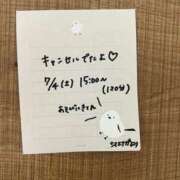 キャンセルでたよ♡
7/4(土) 15:00〜
(120分)
あそびにきてね